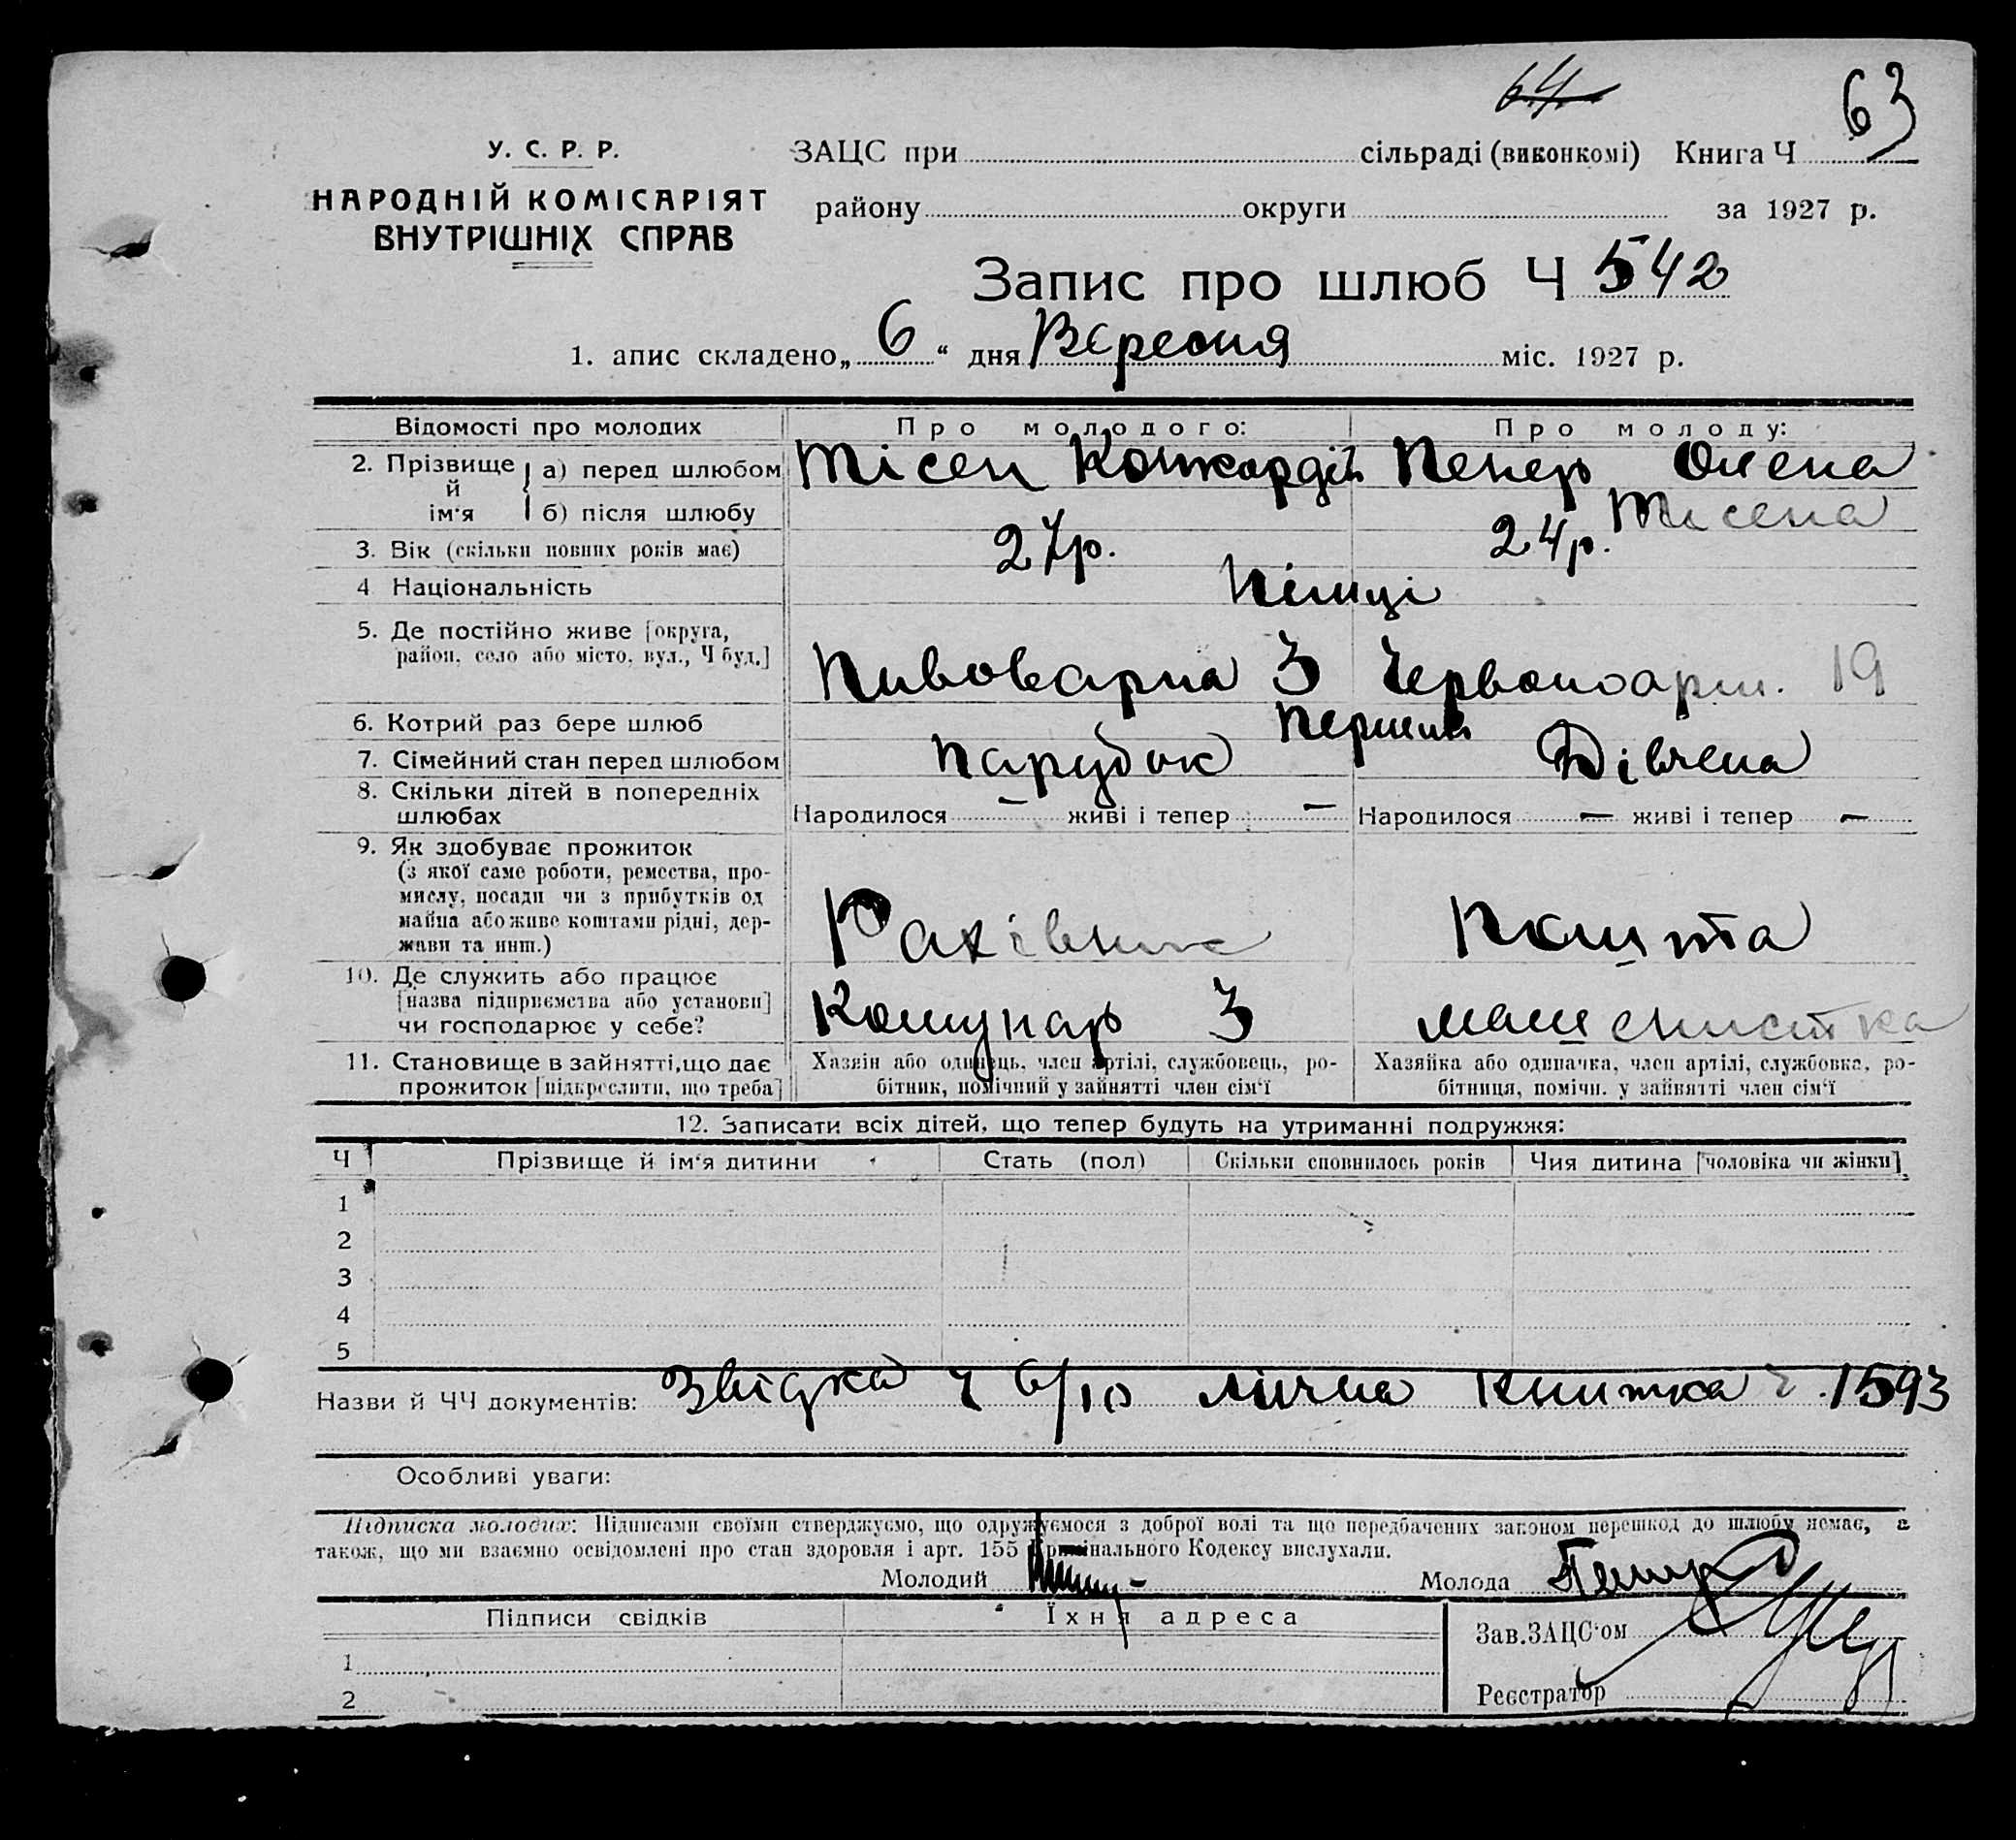 64
63
У. С. Р. Р.
НАРОДНІЙ КОМІСАРІЯТ
ВНУТРІШНІХ СПРАВ
ЗАЦС при сільраді (виконкомі) Книга Ч
району округи за 1927 р.
Запис про шлюб Ч 542
1. апис складено „ 6 “ дня Вересня міс. 1927 р.
Відомості про молодих Про молодого: Про молоду:
2. Прізвище й ім‘я а) перед шлюбом Тісен Конкордій Пенер Олена
б) після шлюбу Тисена
3. Вік (скільки повних років має) 27р. 24р.
4 Національність Німці
5. Де постійно живе [округа,
район, село або місто, вул., Ч буд.] Пивоварна 3 Червоноарм. 19
6. Котрий раз бере шлюб Перший
7. Сімейний стан перед шлюбом Парубок Дівчена
8. Скільки дітей в попередніх
шлюбах Народилося — живі і тепер — Народилося — живі і тепер —
9. Як здобуває прожиток
(з якої саме роботи, ремества, про-
мислу, посади чи з прибутків од
майна або живе коштами рідні, дер-
жави та инш.) Рахівник
10. Де служить або працює
[назва підприємства або установи]
чи господарює у себе? Комунар 3 машенистка
11. Становище в зайнятті, що дає
прожиток [підкреслити, що треба]
Хазяін або одинець, член артілі, службовець, ро-
бітник, помічний у зайнятті член сім‘ї
Хазяйка або одиначка, член артілі, службовка, ро-
бітниця, помічн. у зайнятті член сім‘ї
12. Записати всіх дітей, що тепер будуть на утриманні подружжя:
Ч Прізвище й ім‘я дитини Стать (пол) Скільки сповнилось років Чия дитина [чоловіка чи жінки]
1
2
3
4
5
Назви й ЧЧ документів: Звідка ч 6/10 лична Книжка ч. 1593
Особливі уваги:
Підписка молодих: Підписами своїми стверджуємо, що одружуємося з доброї волі та що передбачених законом перешкод до шлюбу немає, а
також, що ми взаємно освідомлені про стан здоровля і арт. 155 Кримінального Кодексу вислухали.
Молодий Молода
Підписи свідків Їхня адреса
Зав. ЗАЦС‘ом
1
2
Реєстратор